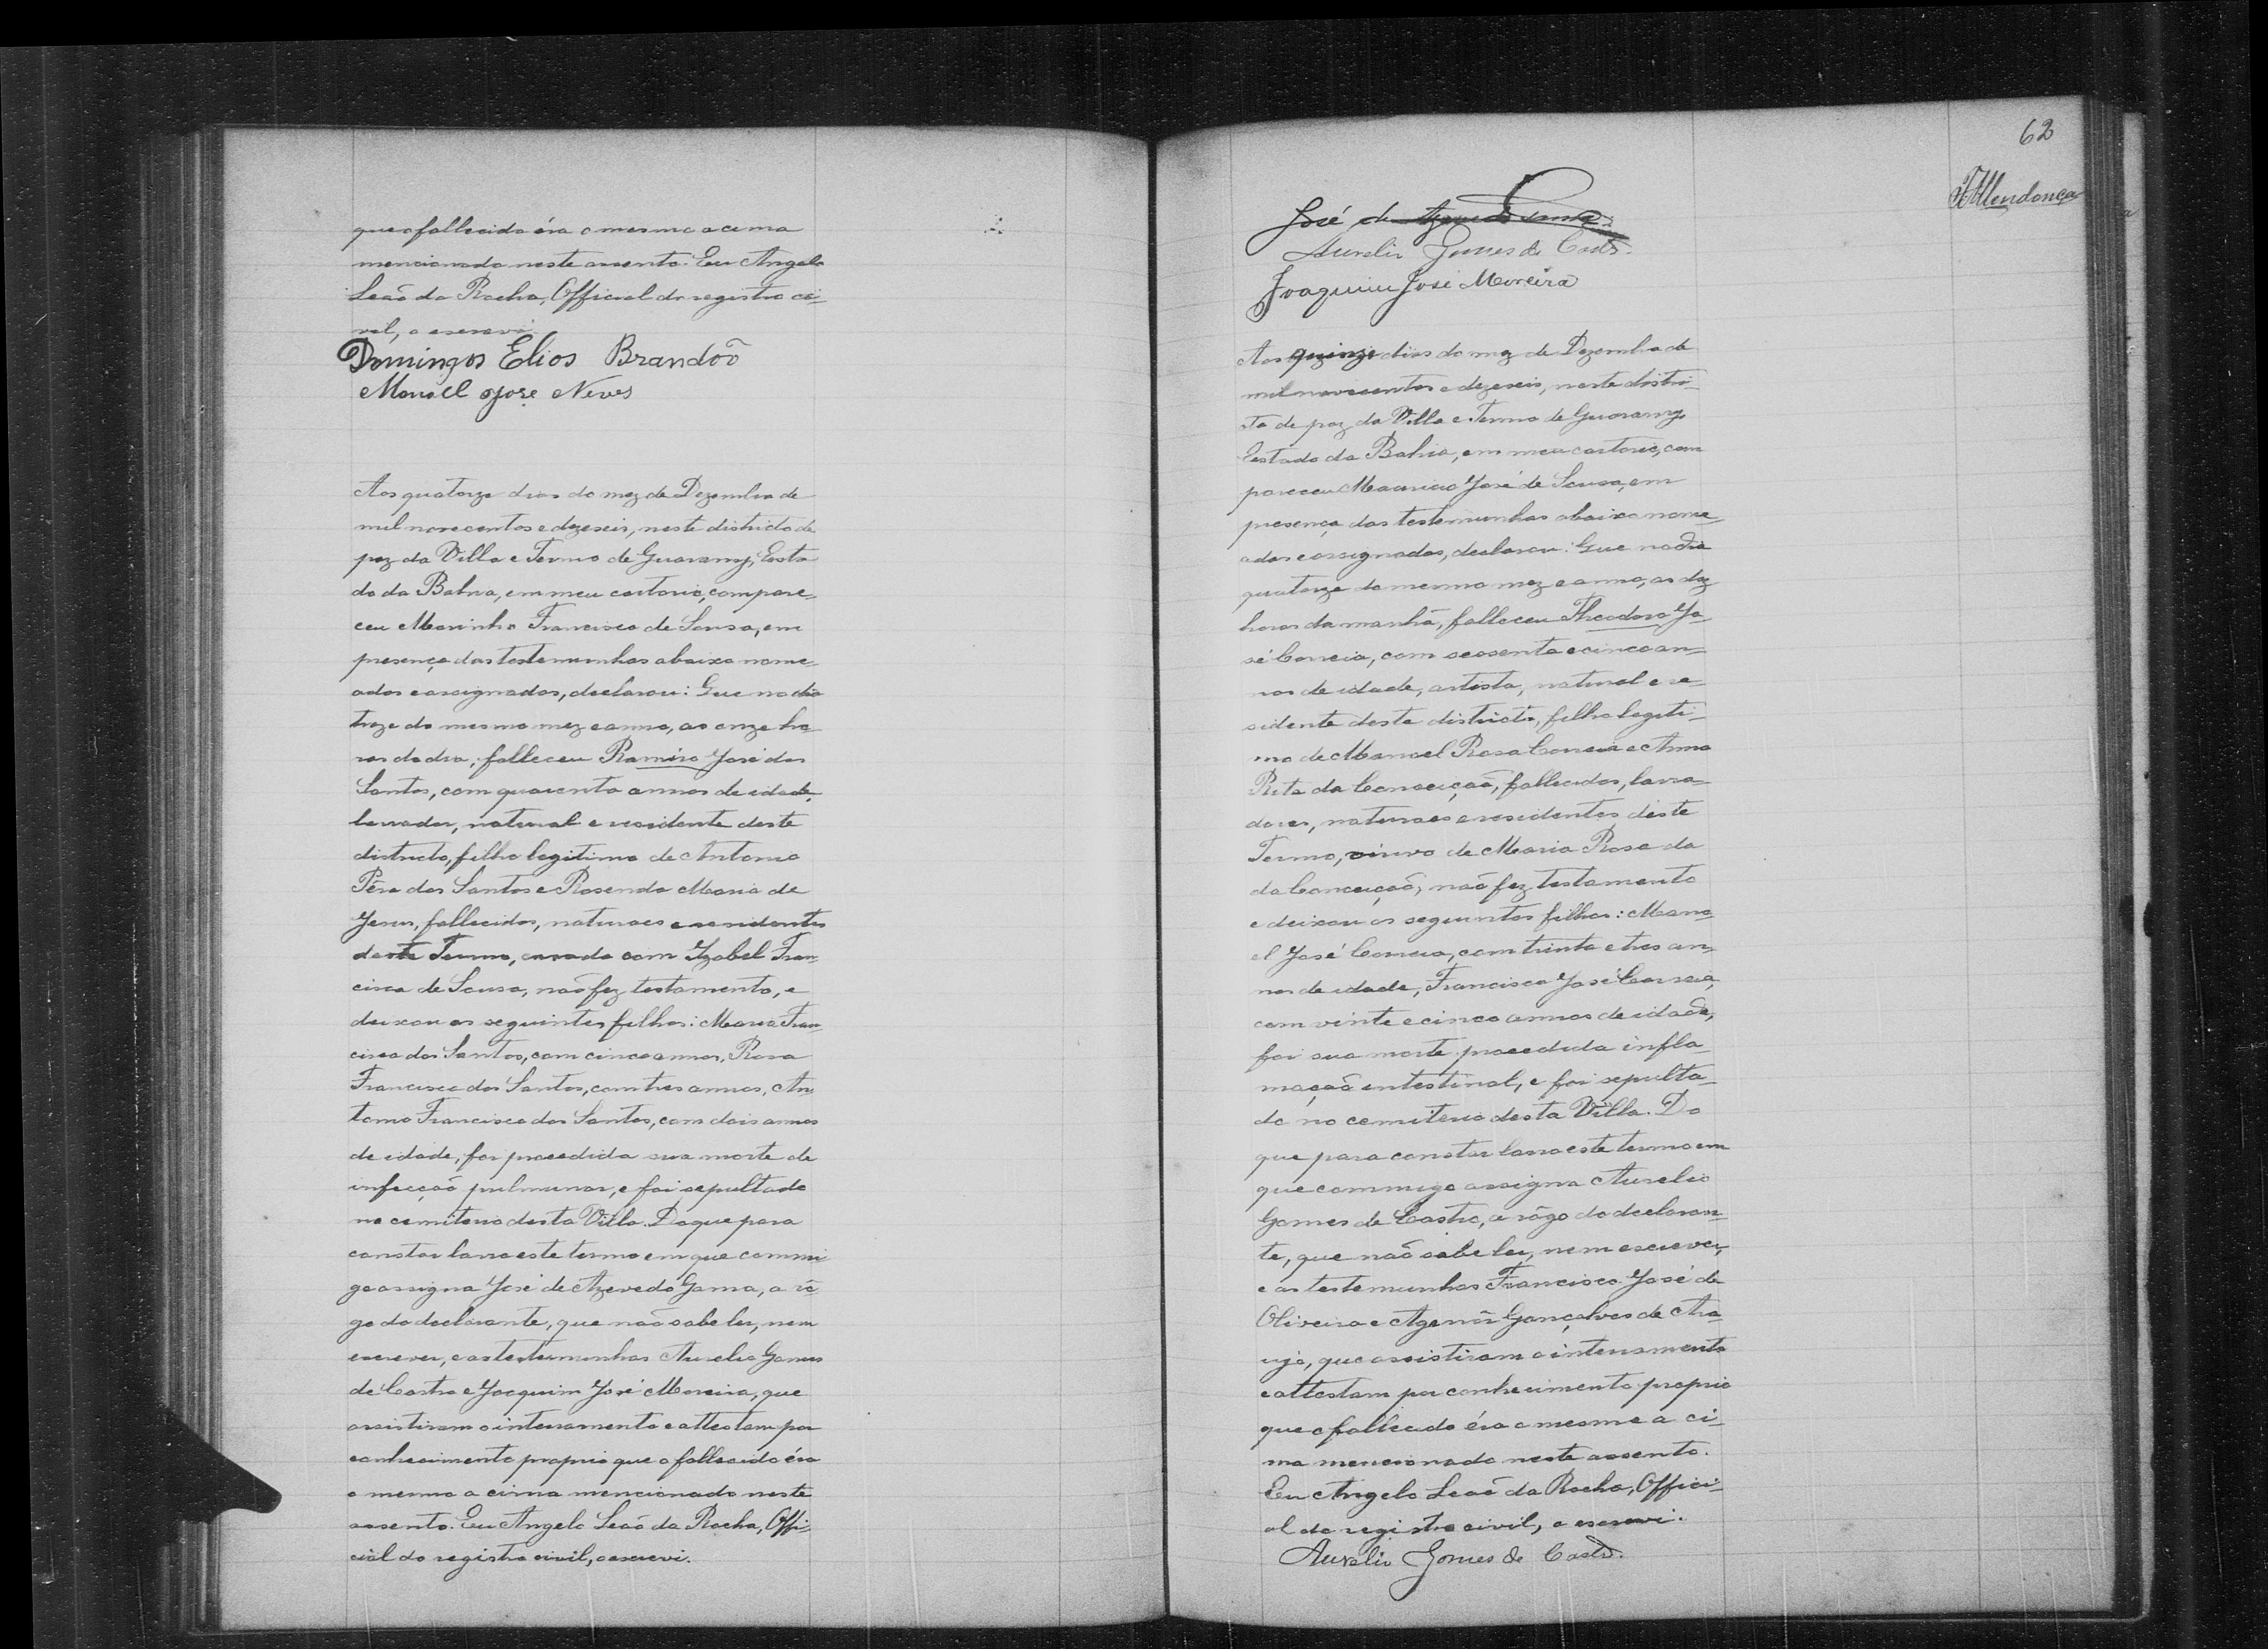 que o fallecido éra o mesmo acima
mencionado neste assento. Eu Angelo
Leão da Rocha, Official do registro ci-
vil, o escrevi.
Domingos Elios Brandoõ
Manoel Jose Neves
Aos quatorze dias do mez de Dezembro de
mil novecentos e dezeseis, neste districto de
paz da Villa e Termo de Guarany, Esta
do da Bahia, em meu cartorio, compare-
ceu Marinho Francisco de Sousa, em
presença das testemunhas abaixo nome-
adas e assignadas, declarou: Que no dia
treze do mesmo mez e anno, as onze ho
ras do dia, falleceu Ramiro José dos
Santos, com quarenta annos de idade,
lavrador, natural e residente deste
districto, filho legitimo de Antonio
Pêra dos Santos e Rosenda Maria de
Jesus, fallecidos, naturaes e residentes
deste Termo, casado com Izabel Fran-
cisca de Sousa, não fez testamento, e
deixou os seguintes filhos: Maria Fran-
cisca dos Santos, com cinco annos, Rosa
Francisca dos Santos, com tres annos, An
tonio Francisco dos Santos, com dois annos
de idade, foi procedida sua morte de
infecção pulmunar, e foi sepultado
no cemiterio desta Villa. Do que para
constar lavro este termo em que commi
go assigna José de Azevedo Gama, a rô
go do declarante, que não sabe ler, nem
escrever, e as testemunhas Aurelio Gomes
de Castro e Joaquim José Moreira, que
assistiram o interramento e attestam por
conhecimento proprio que o fallecido éra
o mesmo a cima mencionado neste
assento. Eu Angelo Leão da Rocha, Offi-
cial do registro civil, o escrevi.
62
Mendonça
José de Azevedo Gama
Aurelio Gomes de Castro.
Joaquim José Moreira
Aos quinze dias do mez de Dezembro de
mil novecentos e dezeseis, neste distri-
to de paz da Villa e Termo de Guarany
Estado da Bahia, em meu cartorio, com
pareceu Mauricio José de Sousa, em
presença das testemunhas abaixo nome-
adas e assignadas, declarou: Que no dia
quatorze do mesmo mez e anno, as dez
horas da manhã, falleceu Theodoro Jo
sé Correia, com sessenta e cinco an-
nos de idade, artista, natural e re-
sidente deste districto, filho legiti-
mo de Manoel Rosa Correia e Anna
Rita da Conceição, fallecidos, lavra-
dores, naturaes e residentes deste
Termo, viuvo de Maria Rosa da
da Conceição, não fez testamento
e deixou os seguintes filhos: Mano
el José Correia, com trinta e tres an-
nos de idade, Francisco José Correia,
com vinte e cinco annos de idade,
foi sua morte procedida infla-
mação intestinal, e foi sepulta-
do no cemiterio desta Villa. Do
que para constar lavro este termo em
que commigo assigna Aurelio
Gomes de Castro, a rôgo do declaran-
te, que não sabe ler, nem escrever,
e as testemunhas Francisco José de
Oliveira e Agenôr Gonçalves de Ara-
ujo, que assistiram o interramento
e attestam por conhecimento proprio
que o fallecido éra o mesmo a ci-
ma mencionado neste assento.
Eu Angelo Leão da Rocha, Offici-
al do registro civil, o escrevi.
Aurelio Gomes de Castro.